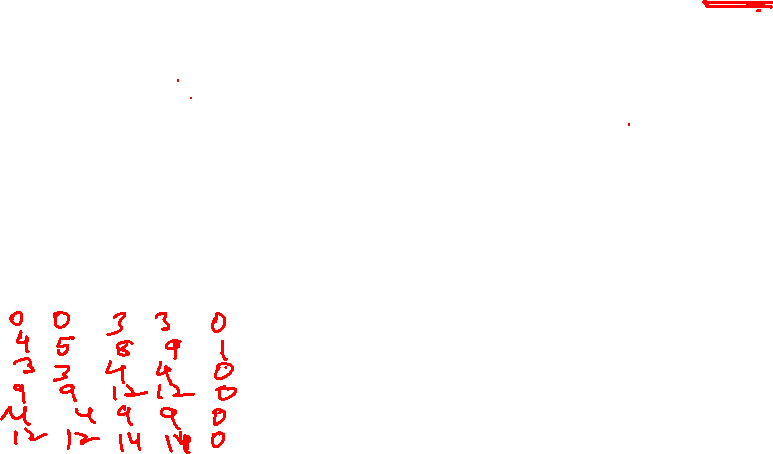 0 0 3 3 0
4 5 8 9 1
3 3 4 4 0
9 9 12 12 0
4 4 9 9 0
12 12 14 14 0